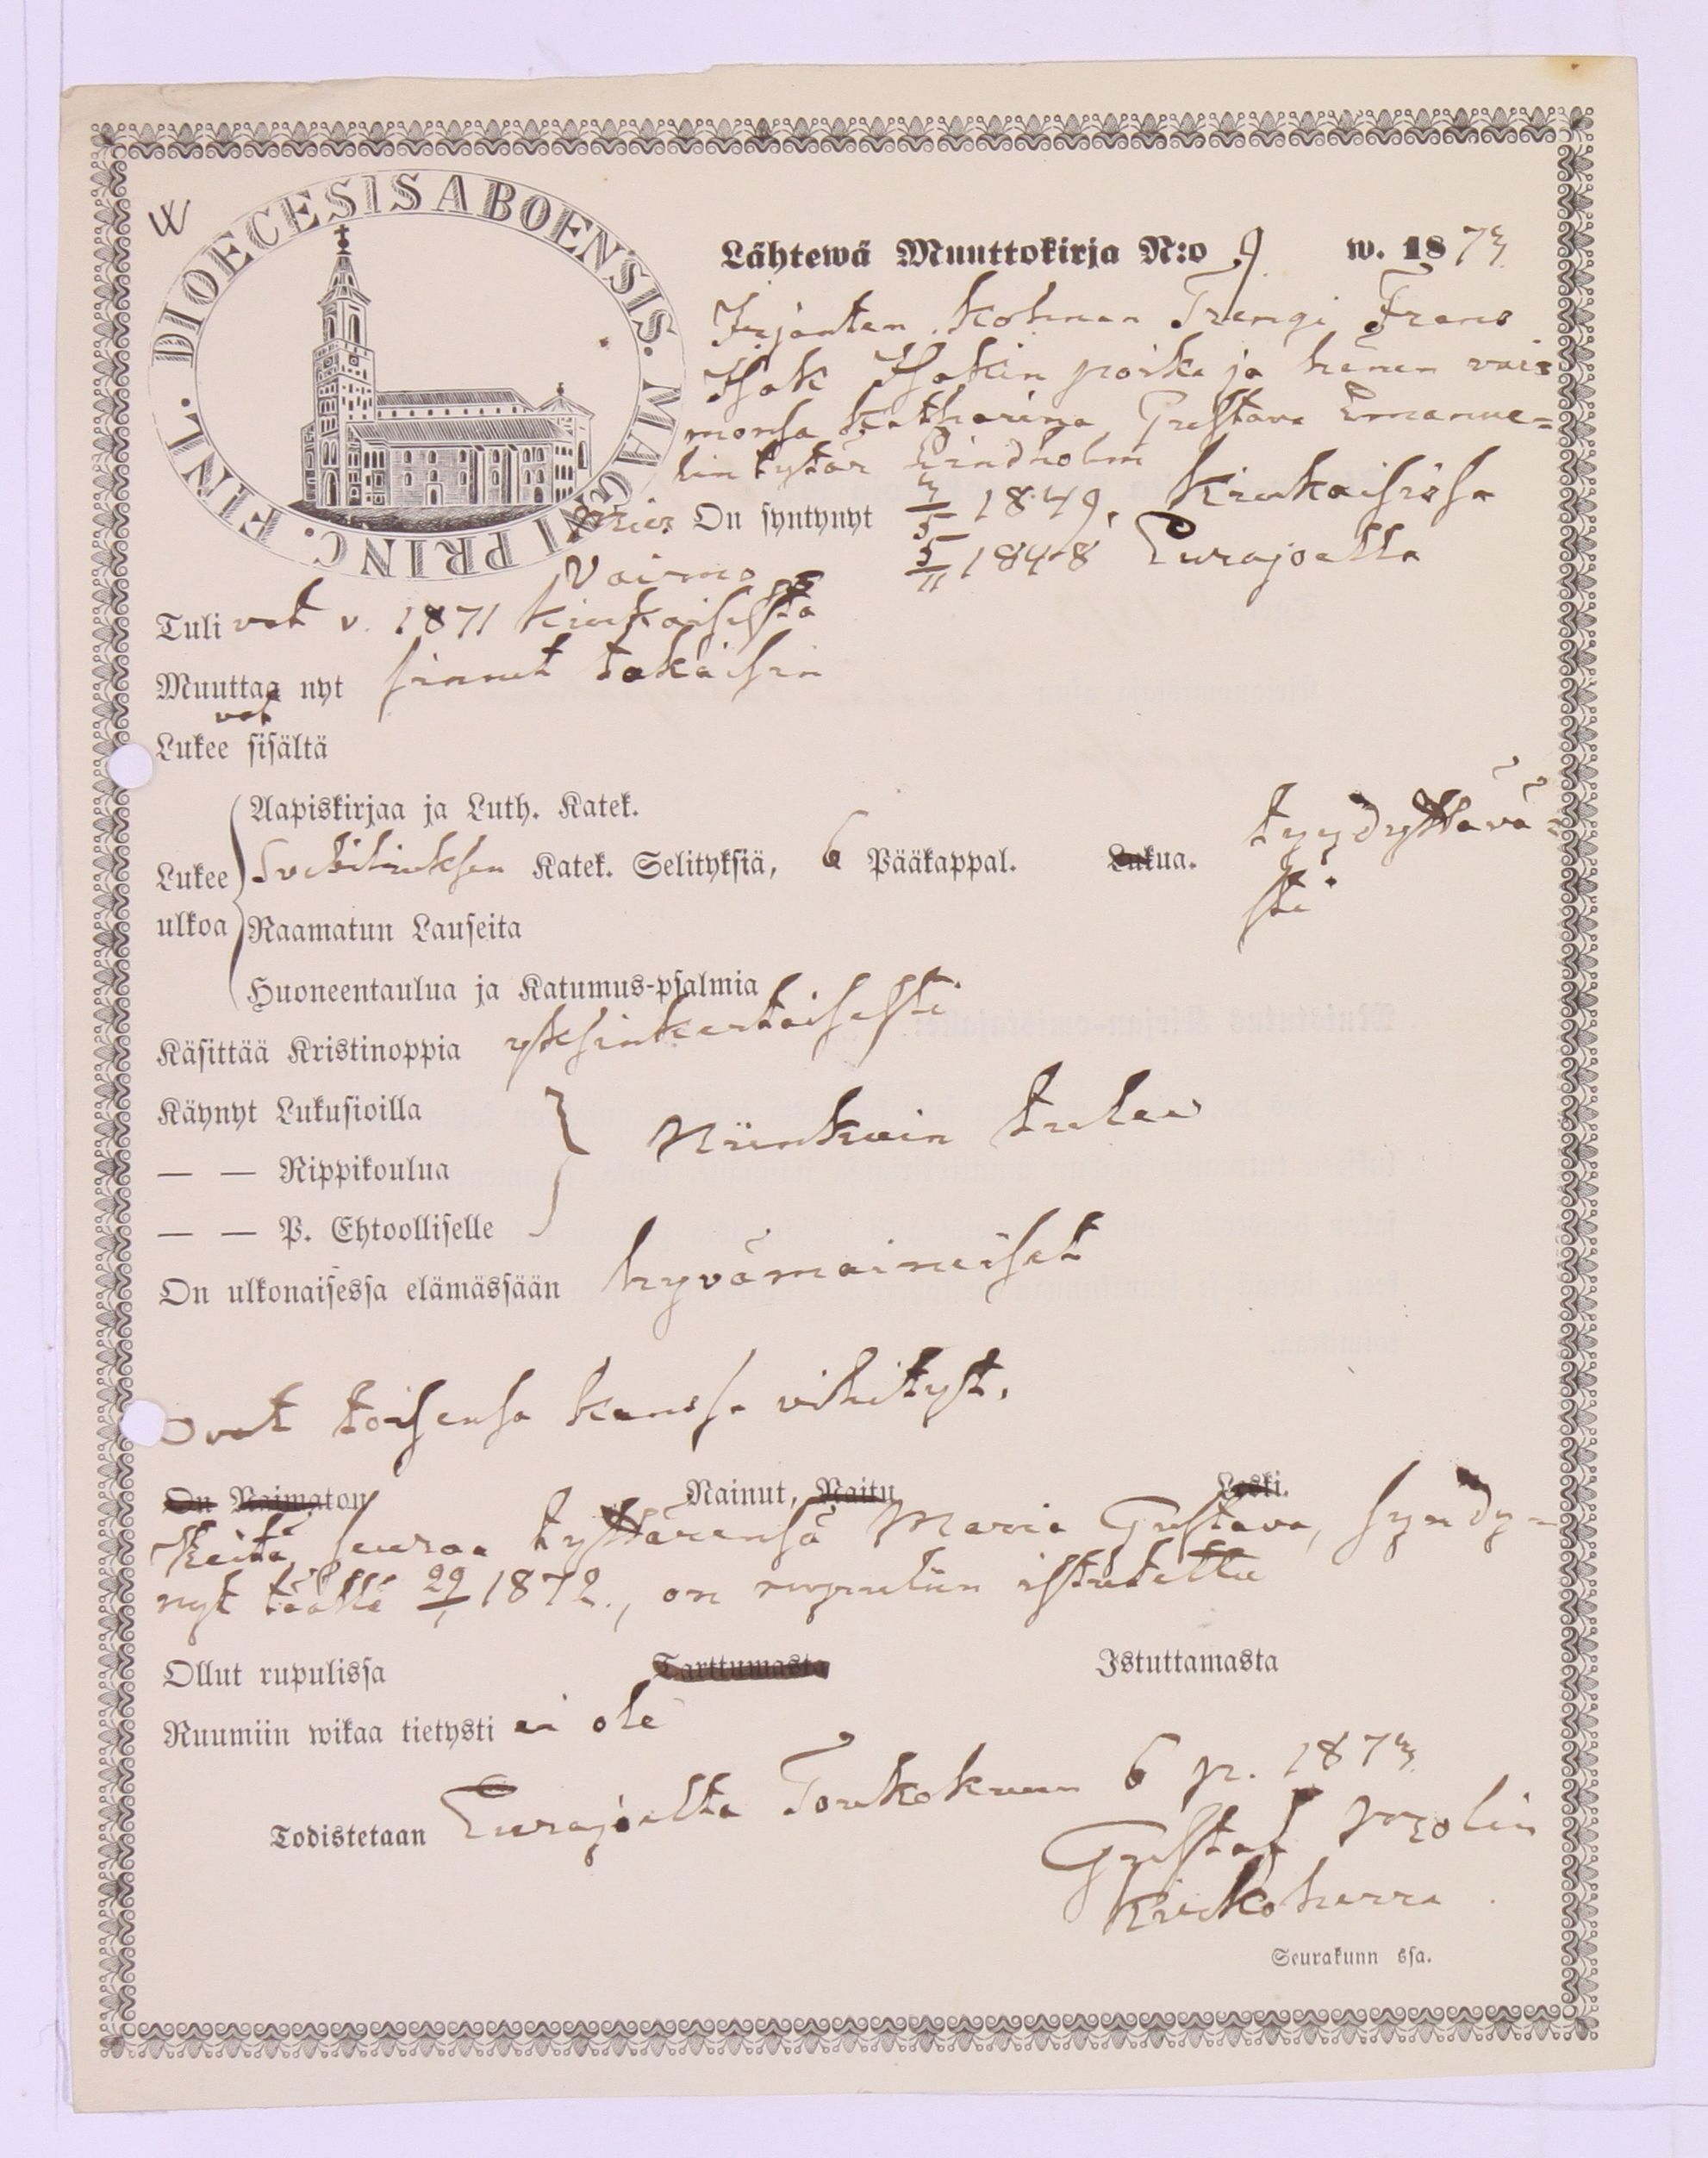 W
DIOECESIS ABOENSIS. MAGNI PRINC. FINL.
Lähtewä Muuttokirja N:o 9. w. 1873
Irjanten Kohnan Trengi Frans
Isak Isakin poika ja hänen vai=
monsa Katharina Gustava Emanue=
lin tytär Lindholm
Mies On syntynyt 3/5 1849, Kiukaisissa
Vaimo 5/11 1848 Eurajoella
Tulivat v. 1871 Kiukaisista
Muuttaavat nyt sinnet takaisin
Lukee sisältä
Aapiskirjaa ja Luth. Katek.
Lukee ulkoa Svebiliuksen Katek. Selityksiä, 6 Pääkappal. Lukua. tyydyttävä=
sti.
Raamatun Lauseita
Huoneentaulua ja Katumus-psalmia
Käsittää Kristinoppia yksinkertaisesti
Käynyt Lukusioilla
— — Rippikoulua Niinkuin tulee
— — P. Ehtoolliselle
On ulkonaisessa elämässään hyvämaineiset
Ovat toisensa kanssa vihityt.
On Naimaton Nainut, Naitu Leski.
Heitä seuraa tyttärensä Maria Gustava, syndy=
nyt täällä 29/1 1872., on rupuliin istutettu
Ollut rupulissa Tarttumasta Istuttamasta
Ruumiin wikaa tietysti ei ole
Todistetaan Eurajoelta Toukokuun 6 p. 1873
Gustaf
Kirkoherra.
Seurakunn ssa.